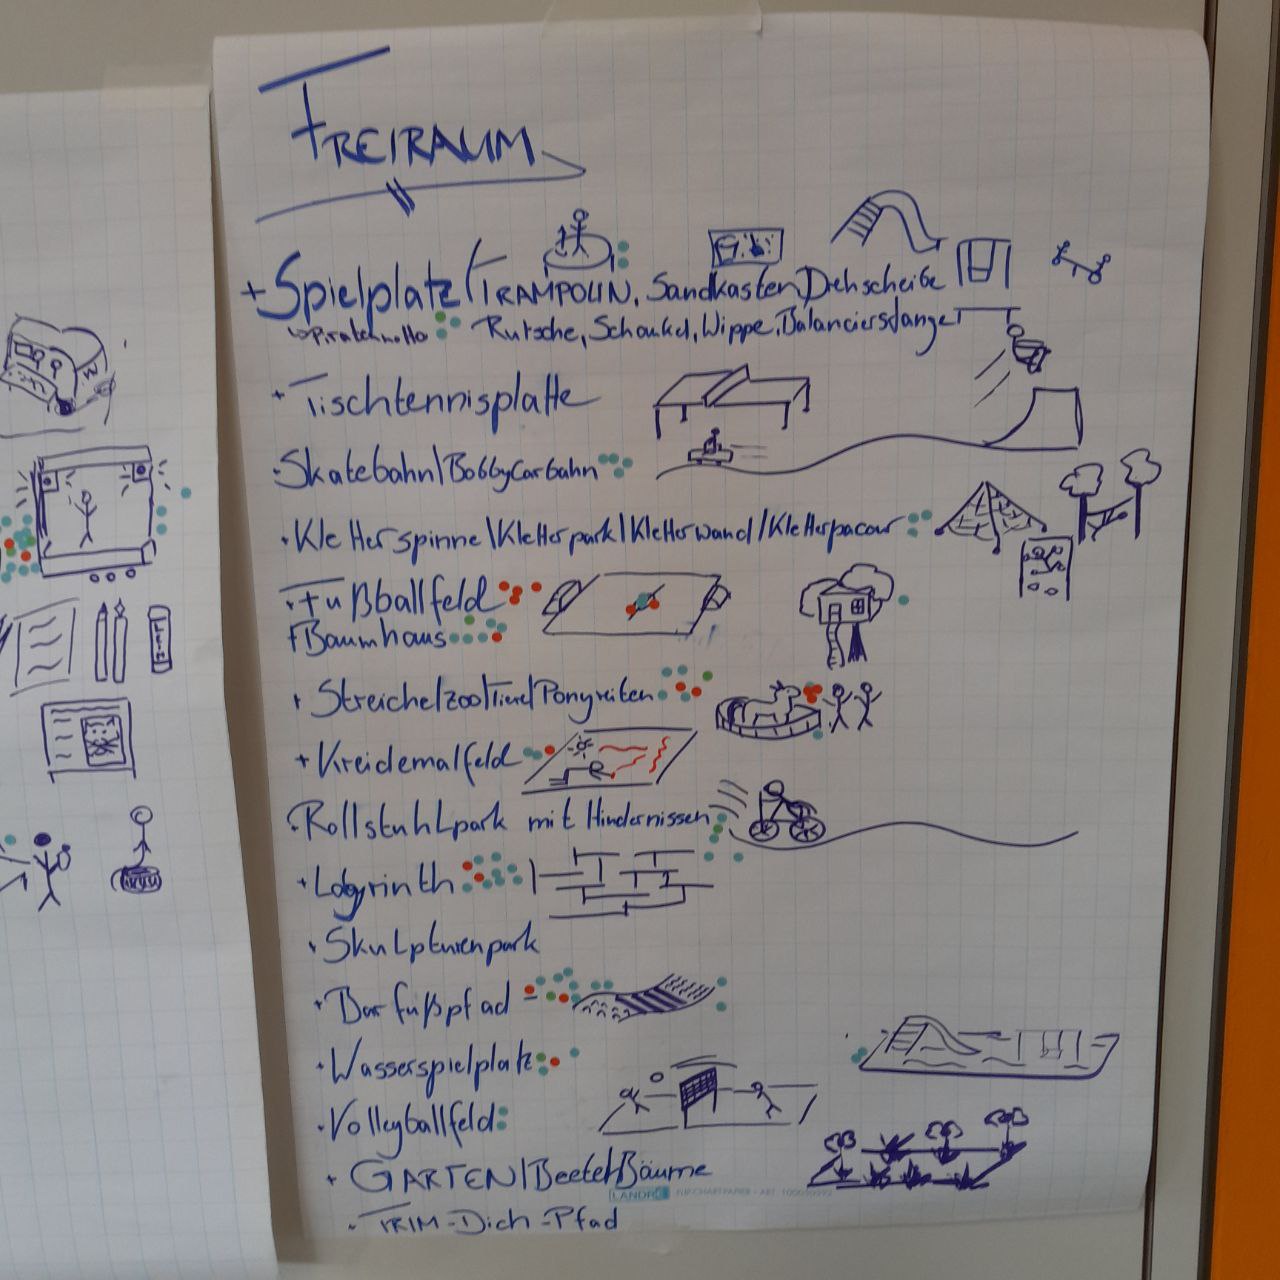 FREIRAUM
+ Spielplatz/TRAMPOLIN, Sandkasten, Drehscheibe
↳ Rutsche, Schaukel, Wippe, Balancierstange
· Tischtennisplatte
· Skatebahn/BobbyCarbahn
· Kletterspinne/Kletterpark/Kletterwand/Kletterpacour
· Fußballfeld
+ Baumhaus
+ Streichelzoo/Tiere/Ponyreiten
+ Kreidemalfeld
· Rollstuhlpark mit Hindernissen
· Labyrinth
· Skulpturenpark
· Barfußpfad
· Wasserspielplatz
· Volleyballfeld
+ GARTEN/Beete/Bäume
LANDRÉ FLIPCHARTPAPIER - ART.
· TRIM-Dich-Pfad